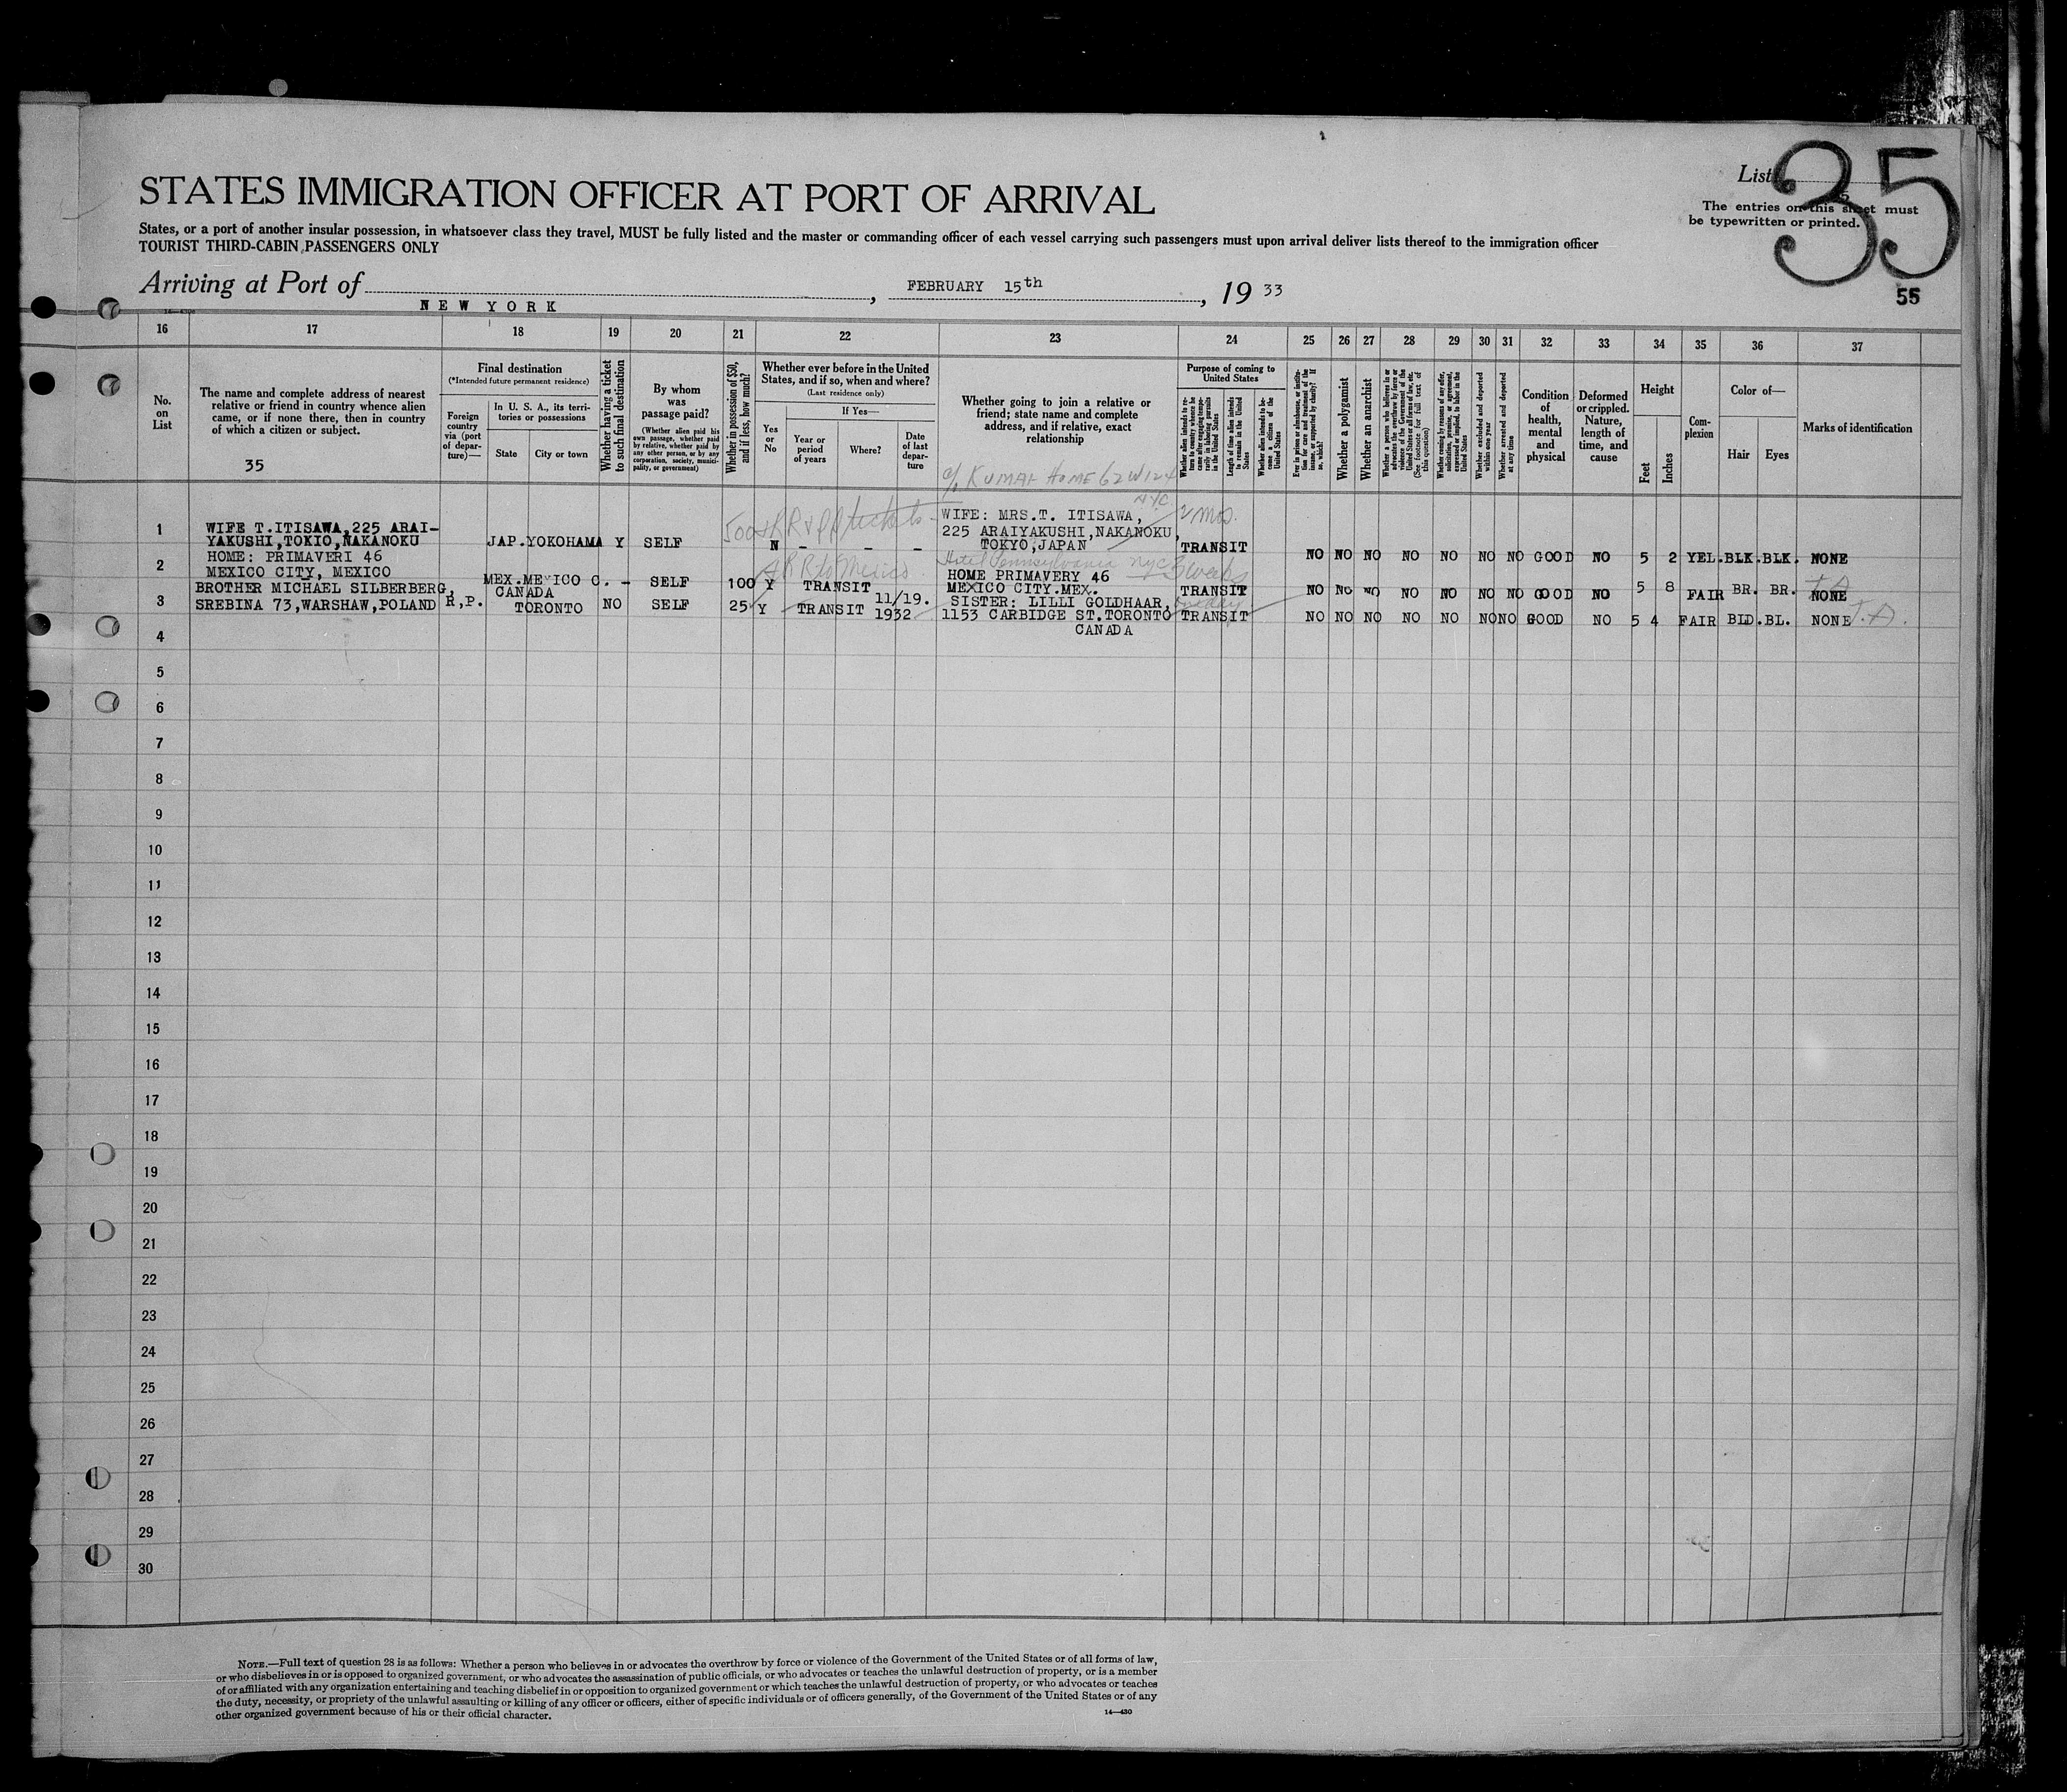 STATES IMMIGRATION OFFICER AT PORT OF ARRIVAL
List
35
The entries on this sheet must
be typewritten or printed.
States, or a port of another insular possession, in whatsoever class they travel, MUST be fully listed and the master or commanding officer of each vessel carrying such passengers must upon arrival deliver lists thereof to the immigration officer
TOURIST THIRD-CABIN PASSENGERS ONLY
Arriving at Port of NEW YORK, FEBRUARY 15th, 19 33
55
16 17 18 19 20 21 22 23 24 25 26 27 28 29 30 31 32 33 34 35 36 37
No. on List
The name and complete address of nearest
relative or friend in country whence alien
came, or if none there, then in country
of which a citizen or subject.
35
Final destination
(*Intended future permanent residence)
Foreign country via (port of departure)—
In U. S. A., its territories or possessions
State
City or town
Whether having a ticket to such final destination
By whom was passage paid?
(Whether alien paid his own passage, whether paid by relative, whether paid by any other person, or by any corporation, society, municipality, or government)
Whether in possession of $50, and if less, how much?
Whether ever before in the United States, and if so, when and where?
(Last residence only)
Yes or No
If Yes—
Year or period of years
Where?
Date of last departure
Whether going to join a relative or
friend; state name and complete
address, and if relative, exact
relationship
Purpose of coming to United States
Whether alien intends to return to country whence he came after engaging temporarily in laboring pursuits in the United States
Length of time alien intends to remain in the United States
Whether alien intends to become a citizen of the United States
Ever in prison or almshouse, or institution for care and treatment of the insane, or supported by charity? If so, which?
Whether a polygamist
Whether an anarchist
Whether a person who believes in or advocates the overthrow by force or violence of the Government of the United States or all forms of law, etc. (See footnote for full text of this question)
Whether coming by reasons of any offer, solicitation, promise, or agreement, expressed or implied, to labor in the United States
Whether excluded and deported within one year
Whether arrested and deported at any time
Condition of health, mental and physical
Deformed or crippled. Nature, length of time, and cause
Height
Feet
Inches
Complexion
Color of—
Hair
Eyes
Marks of identification
c/o KUMAI HOME 62 W 124
NYC
1 WIFE T.ITISAWA,225 ARAI-
YAKUSHI,TOKIO,NAKANOKU JAP.YOKOHAMA Y SELF N - - -
WIFE: MRS.T. ITISAWA,
225 ARAIYAKUSHI,NAKANOKU,
TOKYO,JAPAN
2 mos.
TRANSIT NO NO NO NO NO NO NO GOOD NO 5 2 YEL.BLK.BLK. NONE
2 HOME: PRIMAVERI 46
MEXICO CITY, MEXICO MEX.MEXICO C. - SELF 100 Y TRANSIT
R to Mexico
Hotel Pennsylvania nyc 3 weeks
HOME PRIMAVERY 46
MEXICO CITY.MEX. TRANSIT NO NO NO NO NO NO NO GOOD NO 5 8 FAIR BR. BR. NONE
3 BROTHER MICHAEL SILBERBERG,
SREBINA 73,WARSHAW,POLAND R,P. CANADA
TORONTO NO SELF 25 Y TRANSIT 11/19.
1932
SISTER: LILLI GOLDHAAR,
1153 CARBIDGE ST.TORONTO
CANADA
one day
TRANSIT NO NO NO NO NO NO NO GOOD NO 5 4 FAIR BLD.BL. NONE T.A.
4
5
6
7
8
9
10
11
12
13
14
15
16
17
18
19
20
21
22
23
24
25
26
27
28
29
30
NOTE.—Full text of question 28 is as follows: Whether a person who believes in or advocates the overthrow by force or violence of the Government of the United States or of all forms of law,
or who disbelieves in or is opposed to organized government, or who advocates the assassination of public officials, or who advocates or teaches the unlawful destruction of property, or is a member
of or affiliated with any organization entertaining and teaching disbelief in or opposition to organized government or which teaches the unlawful destruction of property, or who advocates or teaches
the duty, necessity, or propriety of the unlawful assaulting or killing of any officer or officers, either of specific individuals or of officers generally, of the Government of the United States or of any
other organized government because of his or their official character.
14—430